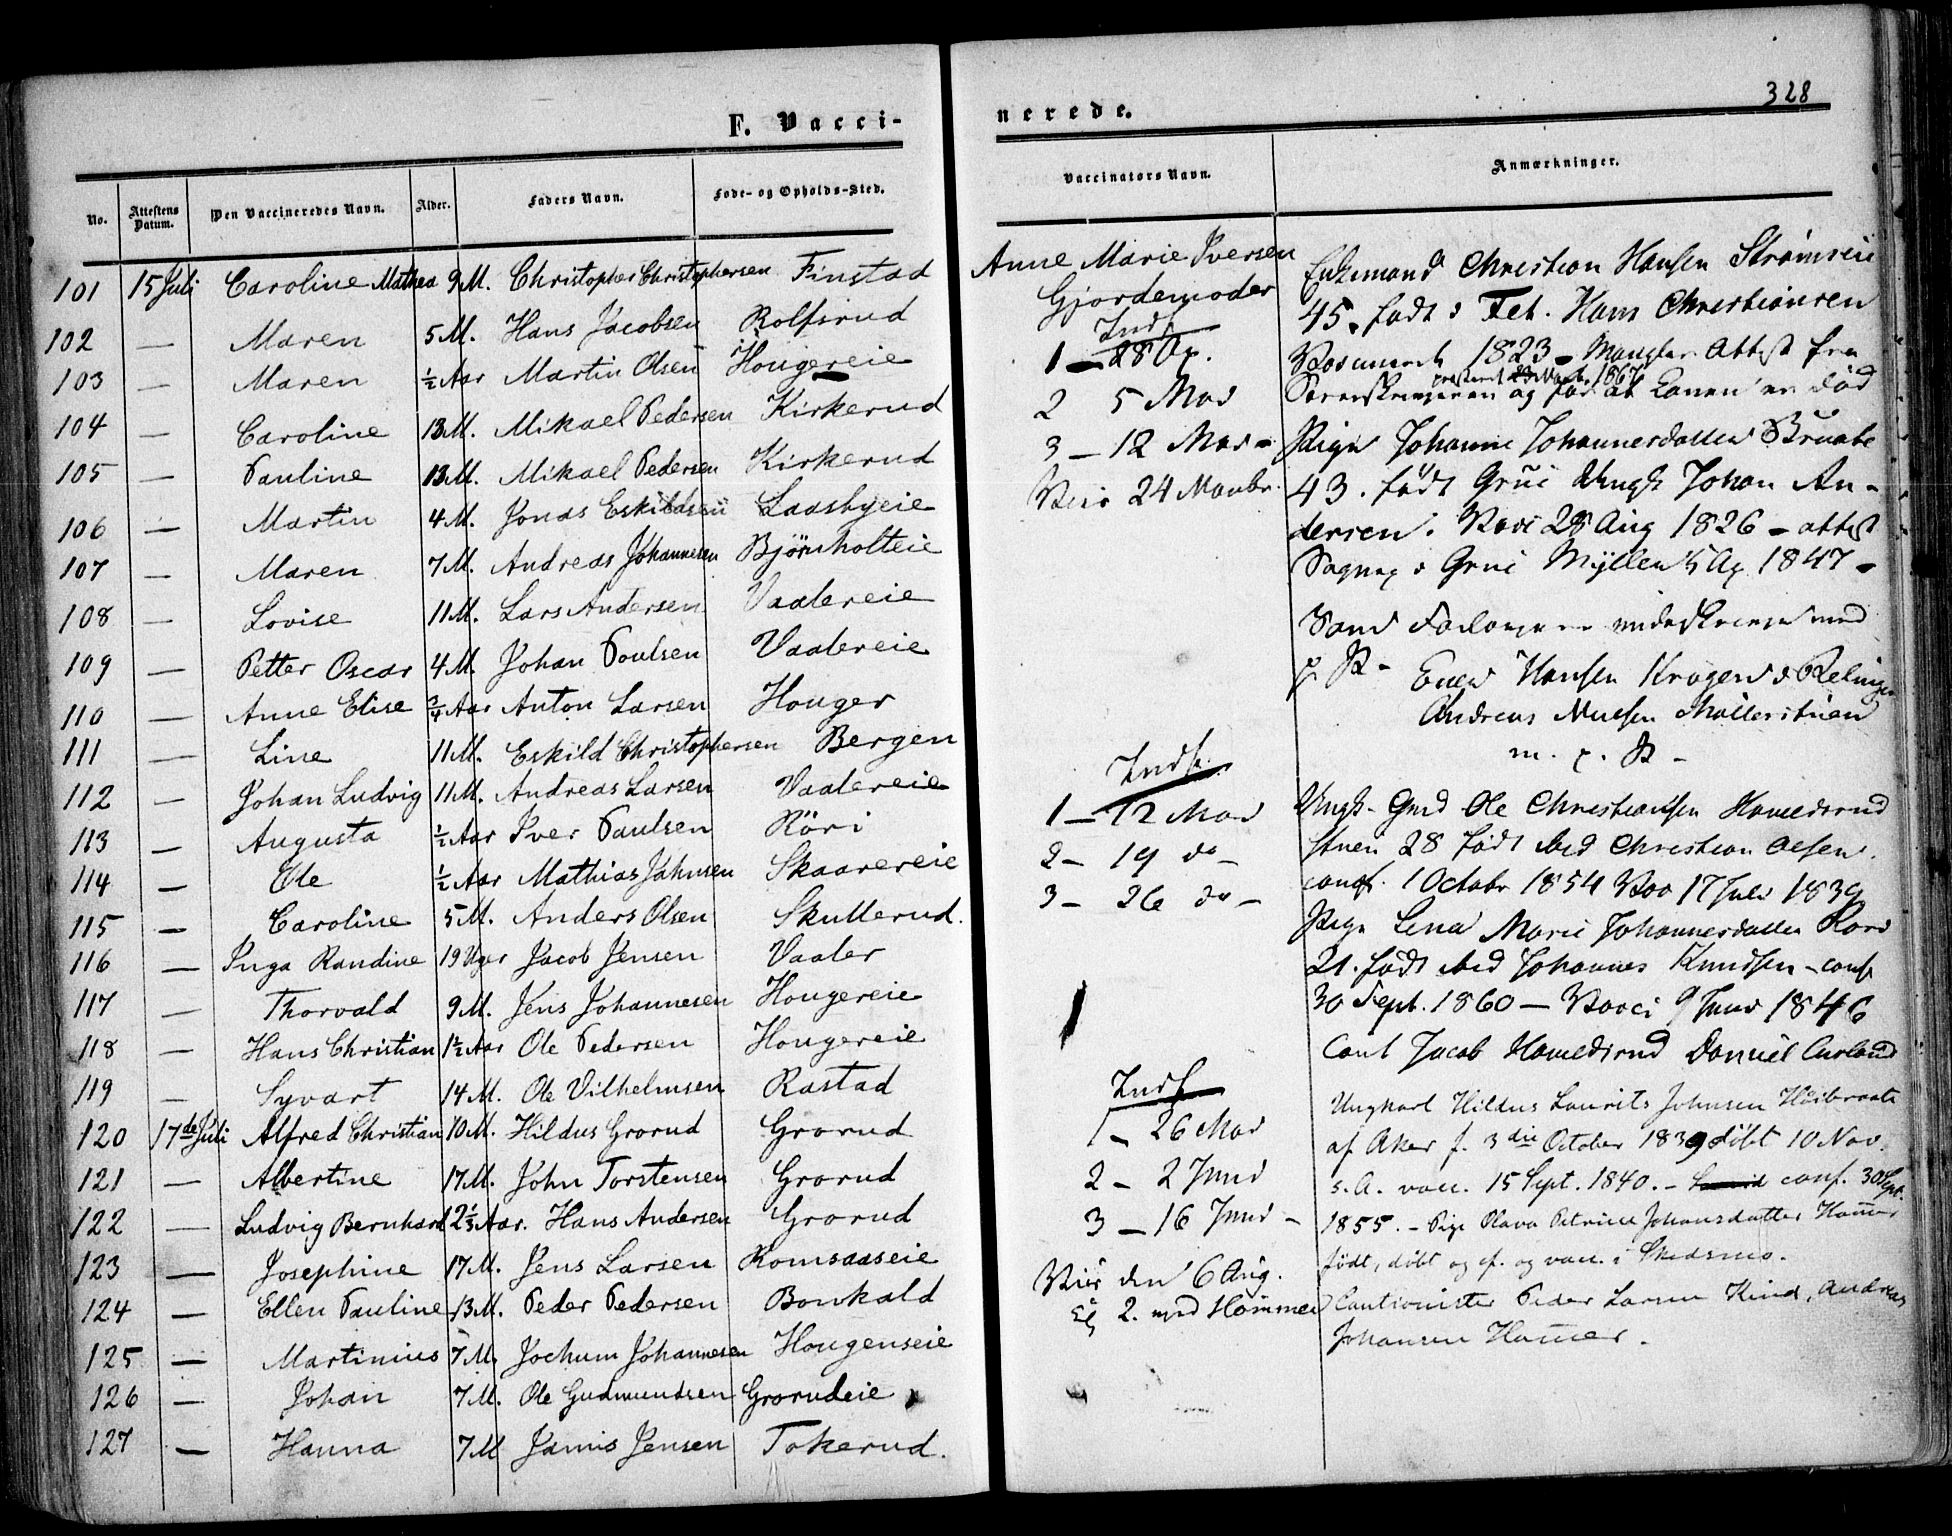 328
F. Vacci-
nerede.
No. Attestens Datum. Den Vaccineredes Navn. Alder. Faders Navn. Føde- og Opholds-Sted.
101 15 Juli Caroline Mathea 9 M. Christopher Christophersen Finstad
102 — Maren 5 M. Hans Jacobsen Rolfsrud
103 — Maren ½ Aar Martin Olsen Hougereie
104 — Caroline 13 M. Mikael Pedersen Kirkerud
105 — Pauline 13 M. Mikael Pedersen Kirkerud
106 — Martin 4 M. Jonas Eskildsen Laasbyeie
107 — Maren 7 M. Andreas Johannesen Bjørnholteie
108 — Lovise 11 M. Lars Andersen Vaalereie
109 — Petter Oscar 4 M. Johan Poulsen Vaalereie
110 — Anne Elise ¾ Aar Anton Larsen Houger
111 — Line 11 M. Eskild Christophersen Bergen
112 — Johan Ludvig 11 M. Andreas Larsen Vaalereie
113 — Augusta ½ Aar Iver Paulsen Röri
114 — Ole ½ Aar Mathias Jahnsen Skaarereie
115 — Caroline 5 M. Anders Olsen Skullerud.
116 — Inga Randine 19 Uger Jacob Jensen Vaaler
117 — Thorvald 9 M. Jens Johannesen Hougereie
118 — Hans Christian 1½ Aar Ole Pedersen Hougereie
119 — Syvart 14 M. Ole Vilhelmsen Rastad
120 17de Juli Alfred Christian 10 M. Hildus Grorud Grorud
121 — Albertine 17 M. John Torstensen Grorud
122 — Ludvig Bernhard 2⅓ Aar. Hans Andersen Grorud
123 — Josephine 17 M. Jens Larsen Romsaaseie
124 — Ellen Pauline 13 M. Peder Pedersen Bonkald
125 — Martinius 7 M. Jochum Johannesen Hougenseie
126 — Johan 7 M. Ole Gudmundsen Grorudeie
127 — Hanna 7 M Jamis Jensen Tokerud.
Vaccinators Navn.
Anne Marie Iversen
Gjordemoder
1 — 28 Ap.
2 5 Mai
3 — 12 Mai -
Viet 24 Novbr.
1 — 12 Mai
2 - 19 do -
3 - 26 do -
1 - 26 Mai
2 - 2 Juni
3 — 16 Juni -
Viet den 6 Aug.
2. med Hammer
Anmærkninger.
Enkemand Christian Hansen Strømseie
45. født i Fet. Hans Christiansen
1823 - Mangler Attest fra
og for at Konen er død
Pige Johanne Johannesdatter
43. født Grue Ungk Johan An-
dersen. Vacc 28 Aug 1826 - attest
Sognep i Grue Myllen 15 Ap 1847 -
Som Forlovere underskrevne med
p. P - Even Hansen Krogen i Relingen
Andreas Nielsen Møllerstuen
m. p. P -
Ungk. Gmd Ole Christiansen Hamedsrud
stuen 28 født ibid Christian Olsen.
conf. 1 Octobr 1854 Vac 17 Juli 1839
Pige Lena Marie Johannesdatter
21. født ibid Johannes Knudsen - conf
30 Sept. 1860 — Vacci 9 Juni 1846
Caut Jacob Hamedsrud Daniel
Ungkarl Hildus Laurits Johnsen Høibraate
af Aker f. 3die October 1839 døbt 10 Nov.
s. A. vacc. 15 Sept. 1840. - conf. 30 Sept.
1855. - Pige Olava Petrine Johansdatter Hammer
født, døbt og cf. og vacc. i Skedsmo.
Cautionister Peder Larsen Kind, Andreas
Johansen Hammer.